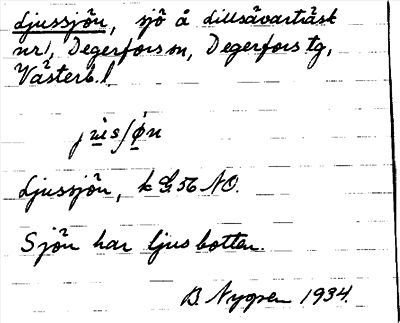 Ljussjön, sjö å Lillsävarträsk
nr 1, Degerfors sn, Degerfors tg,
Västerb. l.
Ljussjön, k G 56 NO.
Sjön har ljus botten.
B. Nygren 1934.